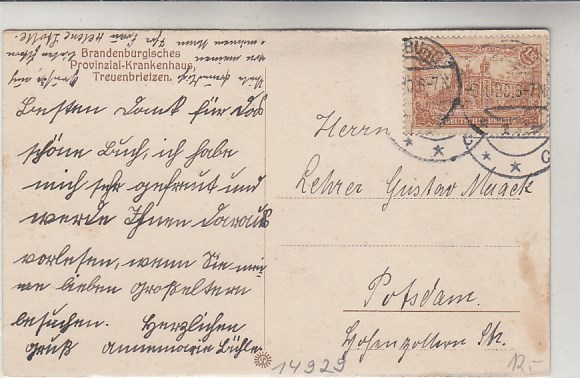 Brandenburgisches
Provinzial-Krankenhaus
Treuenbrietzen.
Besten Dank für das
schöne Buch, ich habe
mich sehr gefreut und
werde Ihnen daraus
vorlesen, wenn Sie mei-
ne lieben Großeltern
besuchen. Herzlichen
Gruß Annemarie Bühler
Herrn
Lehrer Gustav Muack
Potsdam.
Hohenzollern Str.
DEUTSCHES REICH
C
C
14929
12,-